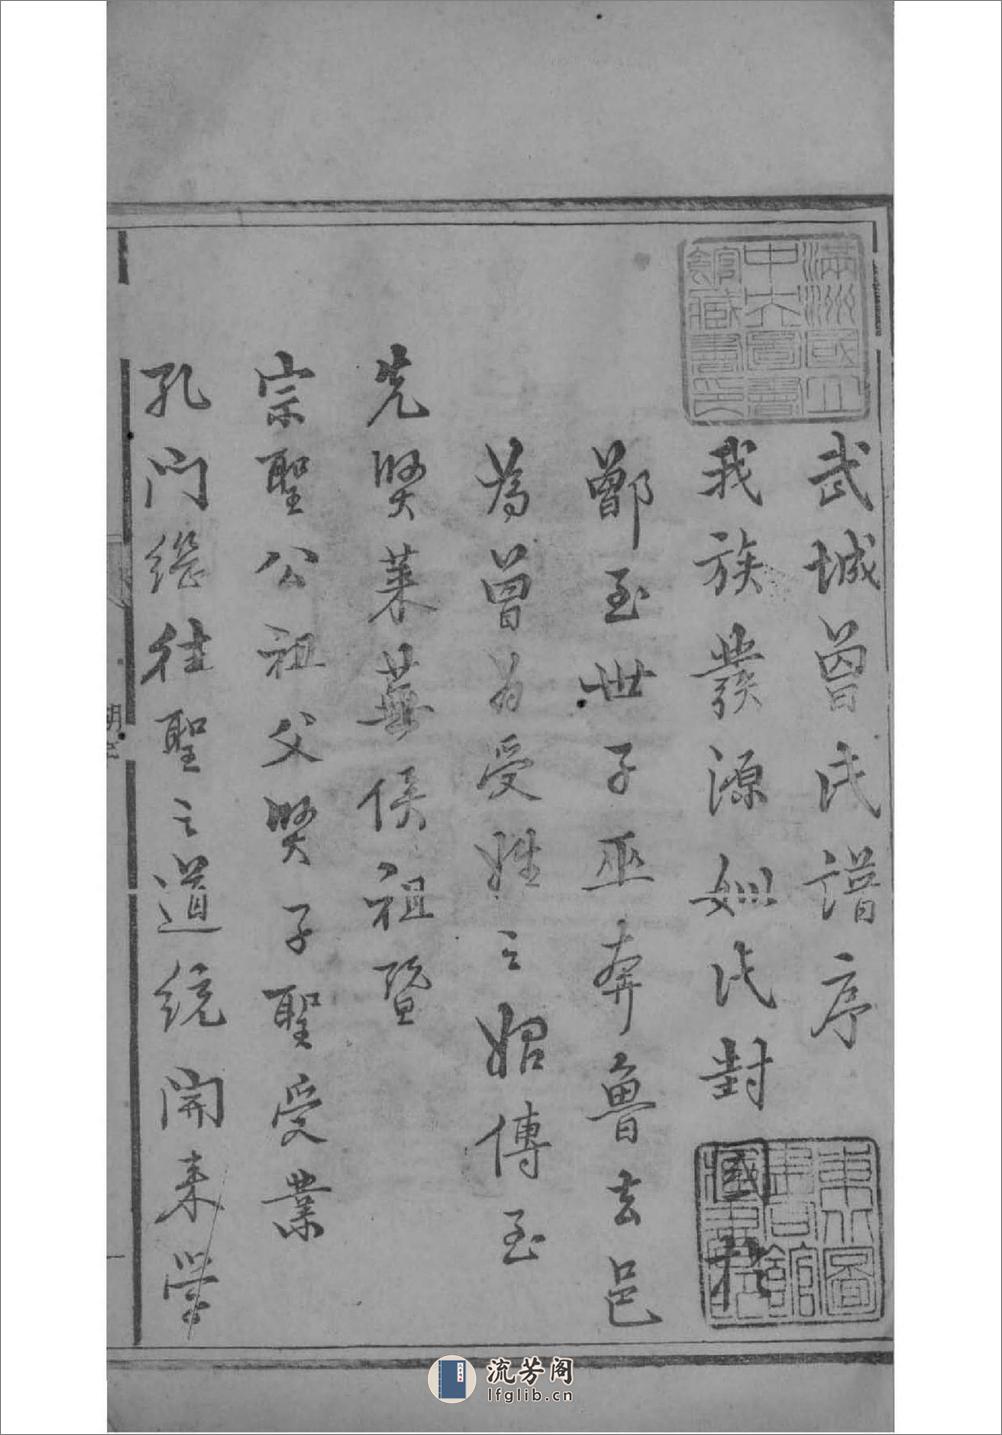 武城曾氏譜序
我族發源姒氏封國於
鄫至世子巫奔魯去邑
為曾為受姓之始傳至
先賢萊蕪侯祖暨
宗聖公祖父賢子聖受業
孔門繼往聖之道統開來學
滿洲國立
中央圖書
館藏書印
東北圖
書館
流芳阁
lfglib.cn